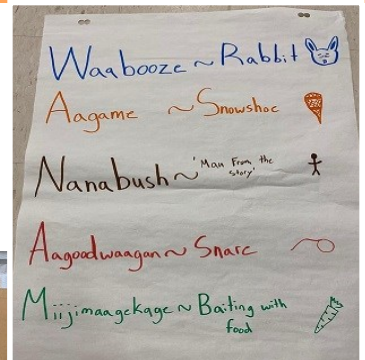 Waabooze ~ Rabbit
Aagame ~ Snowshoe
Nanabush ~ "Man From the
Story"
Aagoodwaagan ~ Snare
Miijimaagekage ~ Baiting with
food